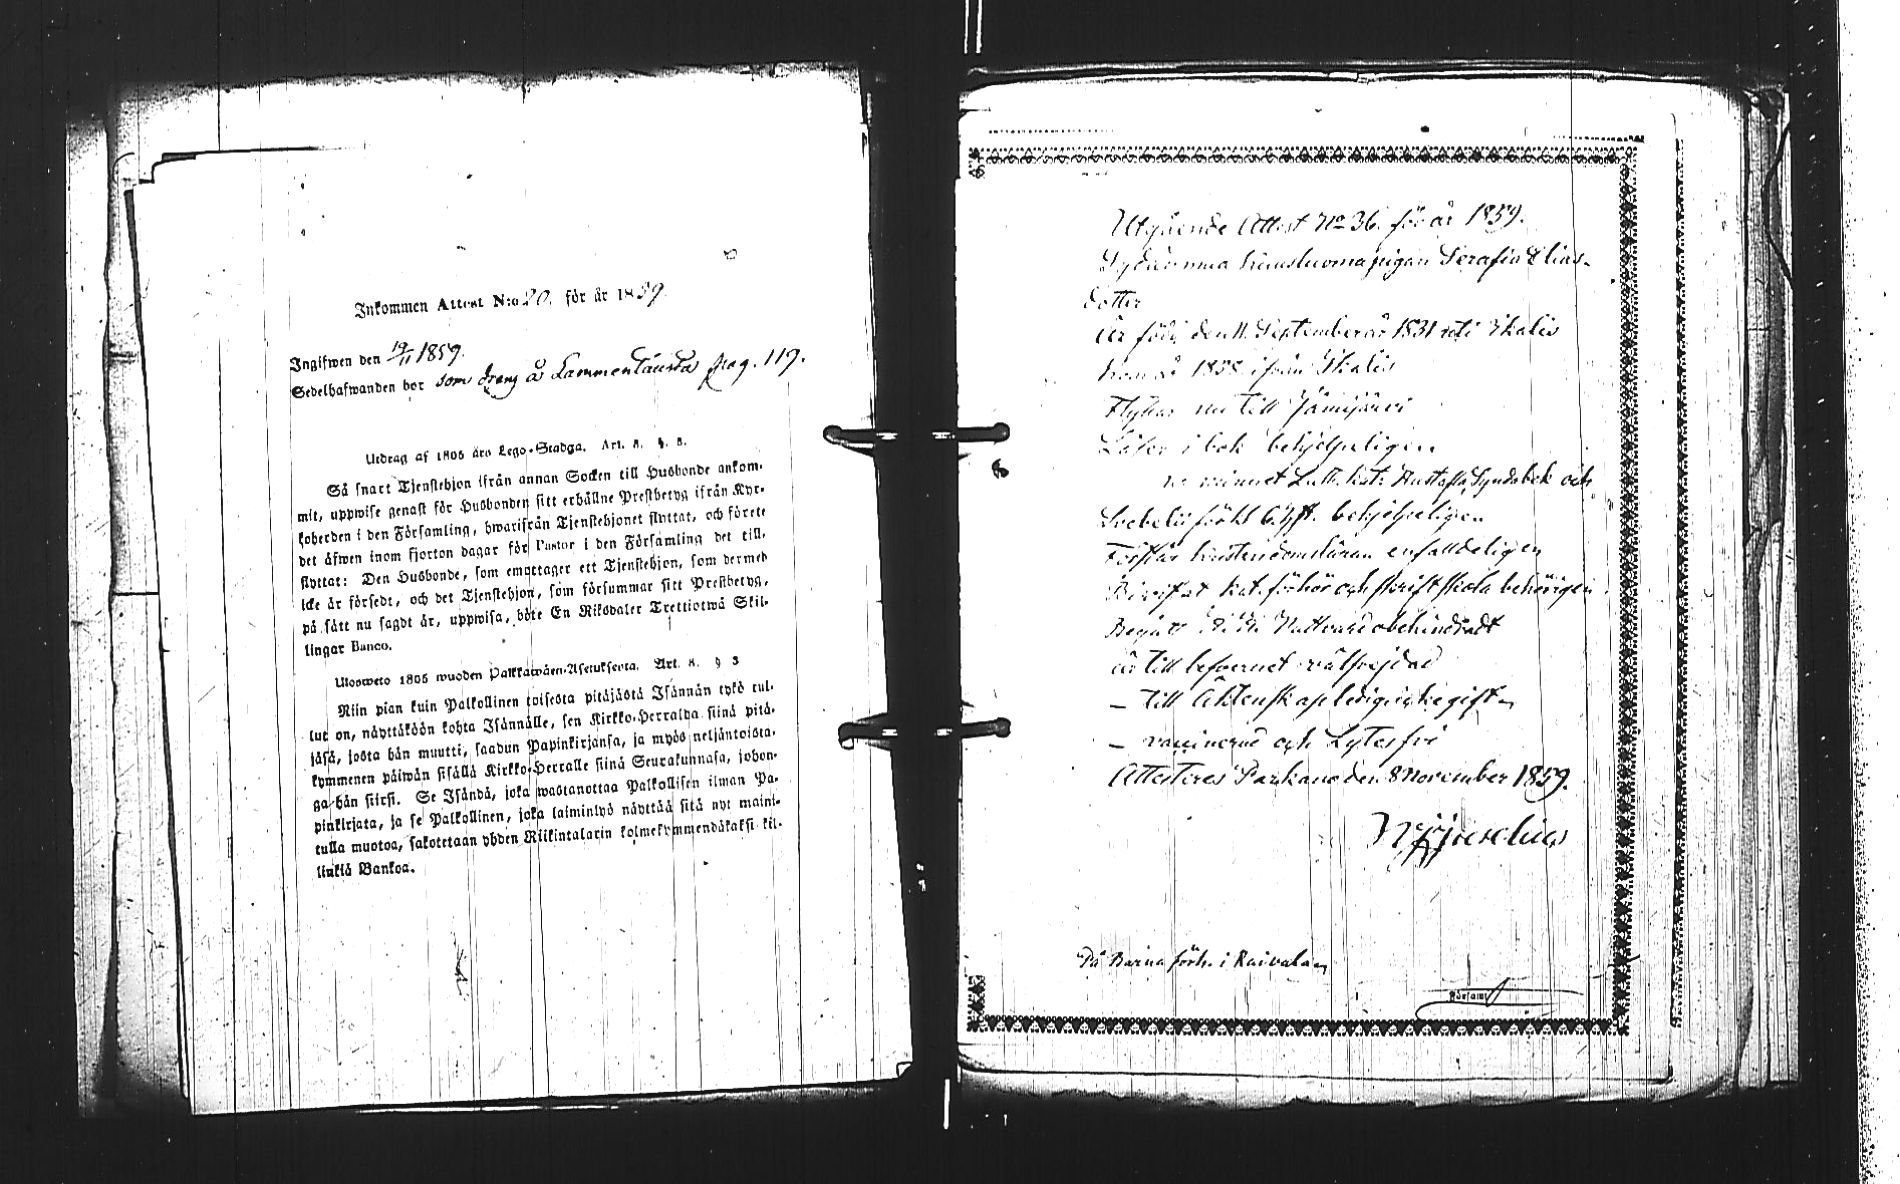 Inkommen Attest N:o 20. för år 1859.
Ingifwen den 19/11 1859.
Sedelhafwanden bor som dreng å Lammentausta pag. 119.
Utdrag af 1805 års Lego-Stadga. Art. 8. §. 8.
Så snart Tjenstehjon ifrån annan Socken till Husbonde ankom-
mit, uppwise genast för Husbonden sitt erhållne Prestbetyg ifrån Kyr-
koherden i den Församling, hwarifrån Tjenstehjonet flyttat, och förete
det äfwen inom fjorton dagar för Pastor i den Församling det till-
flyttat: Den Husbonde, som emottager ett Tjenstehjon, som dermed
icke är försedt, och det Tjenstehjon, som försummar sitt Prestbetyg,
på sätt nu sagdt är, uppwisa, böte En Riksdaler Trettiotwå Skil-
lingar Banco.
Ulosweto 1805 wuoden Palkkawäen-Asetuksesta. Art. 8. §
Niin pian kuin Palkollinen toisesta pitäjästä Isännän tykö tul-
lut on, näyttäköön kohta Isännälle, sen Kirkko-Herralda siinä pitä-
jäsä, josta hän muutti, saadun Papinkirjansa, ja myös neljäntoista-
kymmenen päiwän sisällä Kirkko-Herralle siinä Seurakunnasa, johon-
ga hän siirsi. Se Isändä, joka wastanottaa Palkollisen ilman Pa-
pinkirjata, ja se Palkollinen, joka laiminlyö näyttää sitä nyt maini-
tulla muotoa, sakotetaan yhden Riikintalarin kolmekymmendäkaksi kil-
linkiä Bankoa.
Utgående Attest No 36. för år 1859.
pigan Serafia Elias-
dotter
är född den 11 September år 1831 uti Ikalis
kom år 1858 ifrån Ikalis
Flyttar nu till Jämijärvi
Läser i bok behjelpeligen
minnet Luth. kat. Hustafla, Syndabek och
förkl. behjelpeligen
Förstår kristendomsläran enfaldeligen
Bevistat kat. förhör och skriftskola behörigen
Begått Nattvard obehindradt
är till lefvernet välfrejdad
– till Äktenskap ledig icke gift
– vaccinerad och Lytesfri
Attesteras Parkano den 8 November 1859.
På Barna förh. i Raivala
Församl